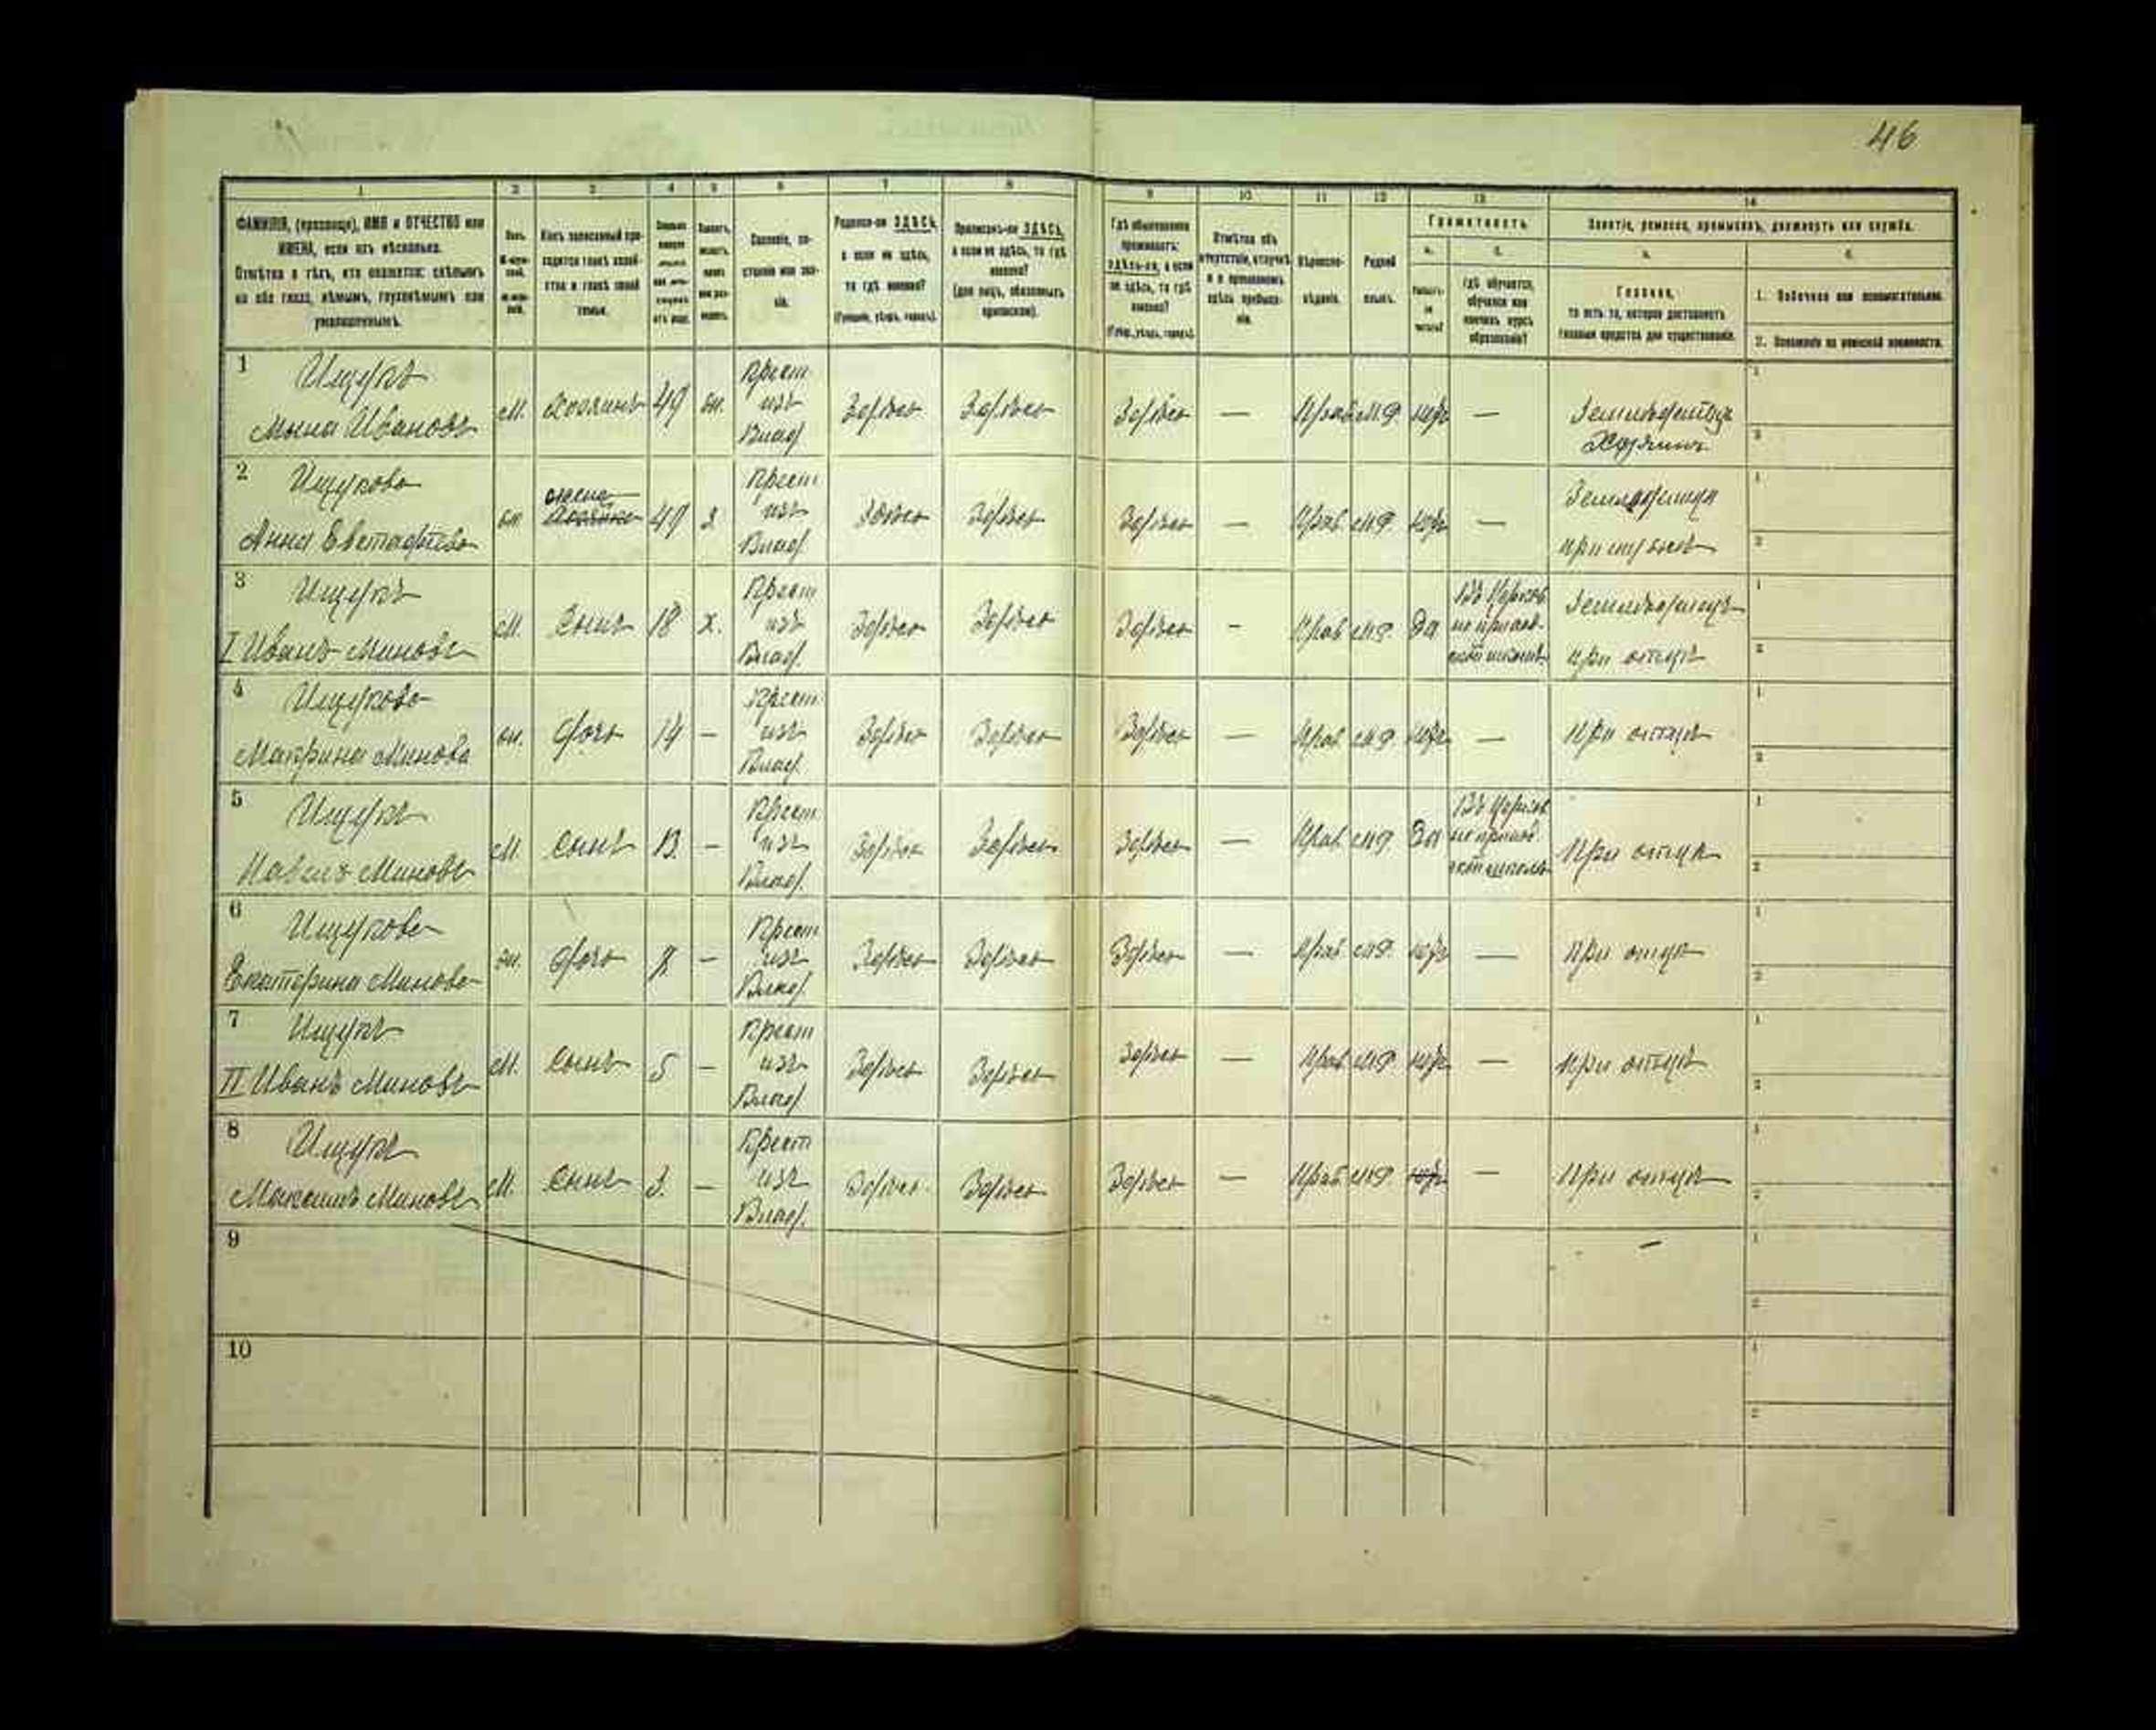 46
1 2 3 4 5 6 7 8 9 10 11 12 13 14
ФАМИЛІЯ, (прозвище), ИМЯ и ОТЧЕСТВО или
ИМЕНА, если ихъ нѣсколько.
Отмѣтка о тѣхъ, кто окажется: слѣпымъ
на оба глаза, нѣмымъ, глухонѣмымъ или
умалишеннымъ.
Полъ.
Какъ записанный при-
ходится главѣ хозяй-
ства и главѣ своей
семьи.
Сословіе, со-
стояніе или зва-
ніе.
Родился-ли ЗДѢСЬ,
а если не здѣсь,
то гдѣ именно?
(Губернія, уѣздъ, городъ).
Приписанъ-ли ЗДѢСЬ,
а если не здѣсь, то гдѣ
именно?
(для лицъ, обязанныхъ
припискою).
Гдѣ обыкновенно
проживаетъ:
здѣсь-ли, а если
не здѣсь, то гдѣ
именно?
(Губер., уѣздъ, городъ).
Отмѣтка объ
отсутствіи, отлучкѣ
и о временномъ
здѣсь пребыва-
ніи.
Вѣроиспо-
вѣданіе.
Родной
языкъ.
Грамотность
а. б.
Умѣетъ-
ли
читать?
Гдѣ обучается,
обучался или
кончилъ курсъ
образованія?
Занятіе, ремесло, промыселъ, должность или служба.
а. б.
Главное,
то есть то, которое доставляетъ
главныя средства для существованія.
1. Побочное или вспомогательное.
2. Положеніе по воинской повинности.
1 Ищукъ
Мина Ивановъ
М. Хозяинъ 49 ж. Крест. изъ Влад. Здѣсь Здѣсь Здѣсь — Прав. М.Р. нѣтъ — Земледѣлецъ
Хозяинъ
2 Ищукова
Анна Евстафіева
ж. жена 49 з Крест. изъ Влад. Здѣсь Здѣсь Здѣсь — Прав. М.Р. нѣтъ — Земледѣлица
при мужѣ
3 Ищукъ
I Иванъ Миновъ
М. Сынъ 18 х. Крест. изъ Влад. Здѣсь Здѣсь Здѣсь - Прав. М.Р. да Въ Церков
но приход-
ской школѣ Земледѣлецъ
при отцѣ
4 Ищукова
Матрина Минова
ж. дочь 14 — Крест. изъ Влад. Здѣсь Здѣсь Здѣсь — Прав. М.Р. нѣтъ — При отцѣ
5 Ищукъ
Павелъ Миновъ
М. Сынъ 13. — Крест. изъ Влад. Здѣсь Здѣсь Здѣсь — Прав. М.Р. да Въ Церков
но приход
ской школѣ При отцѣ
6 Ищукова
Екатерина Минова
ж. дочь — Крест. изъ Влад. Здѣсь Здѣсь Здѣсь — Прав. М.Р. нѣтъ — При отцѣ
7 Ищукъ
II Иванъ Миновъ
М. Сынъ 5 — Крест. изъ Влад. Здѣсь Здѣсь Здѣсь — Прав. М.Р. нѣтъ — При отцѣ
8 Ищукъ
Максимъ Миновъ
М. Сынъ 3. — Крест. изъ Влад. Здѣсь Здѣсь Здѣсь — Прав. М.Р. нѣтъ — При отцѣ
9
10